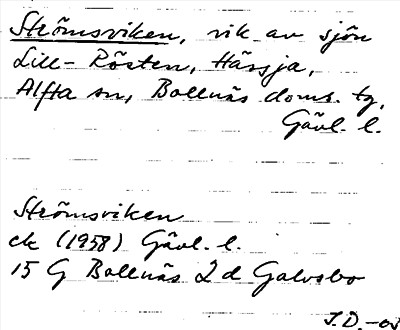 Strömsviken, vik av sjön
Lill-Rösten, Hässja,
Alfta sn, Bollnäs doms. tg,
Gävl. l.
Strömsviken
ek (1958) Gävl. l.
15 G Bollnäs 2 d Galvsbo
J.D.-03